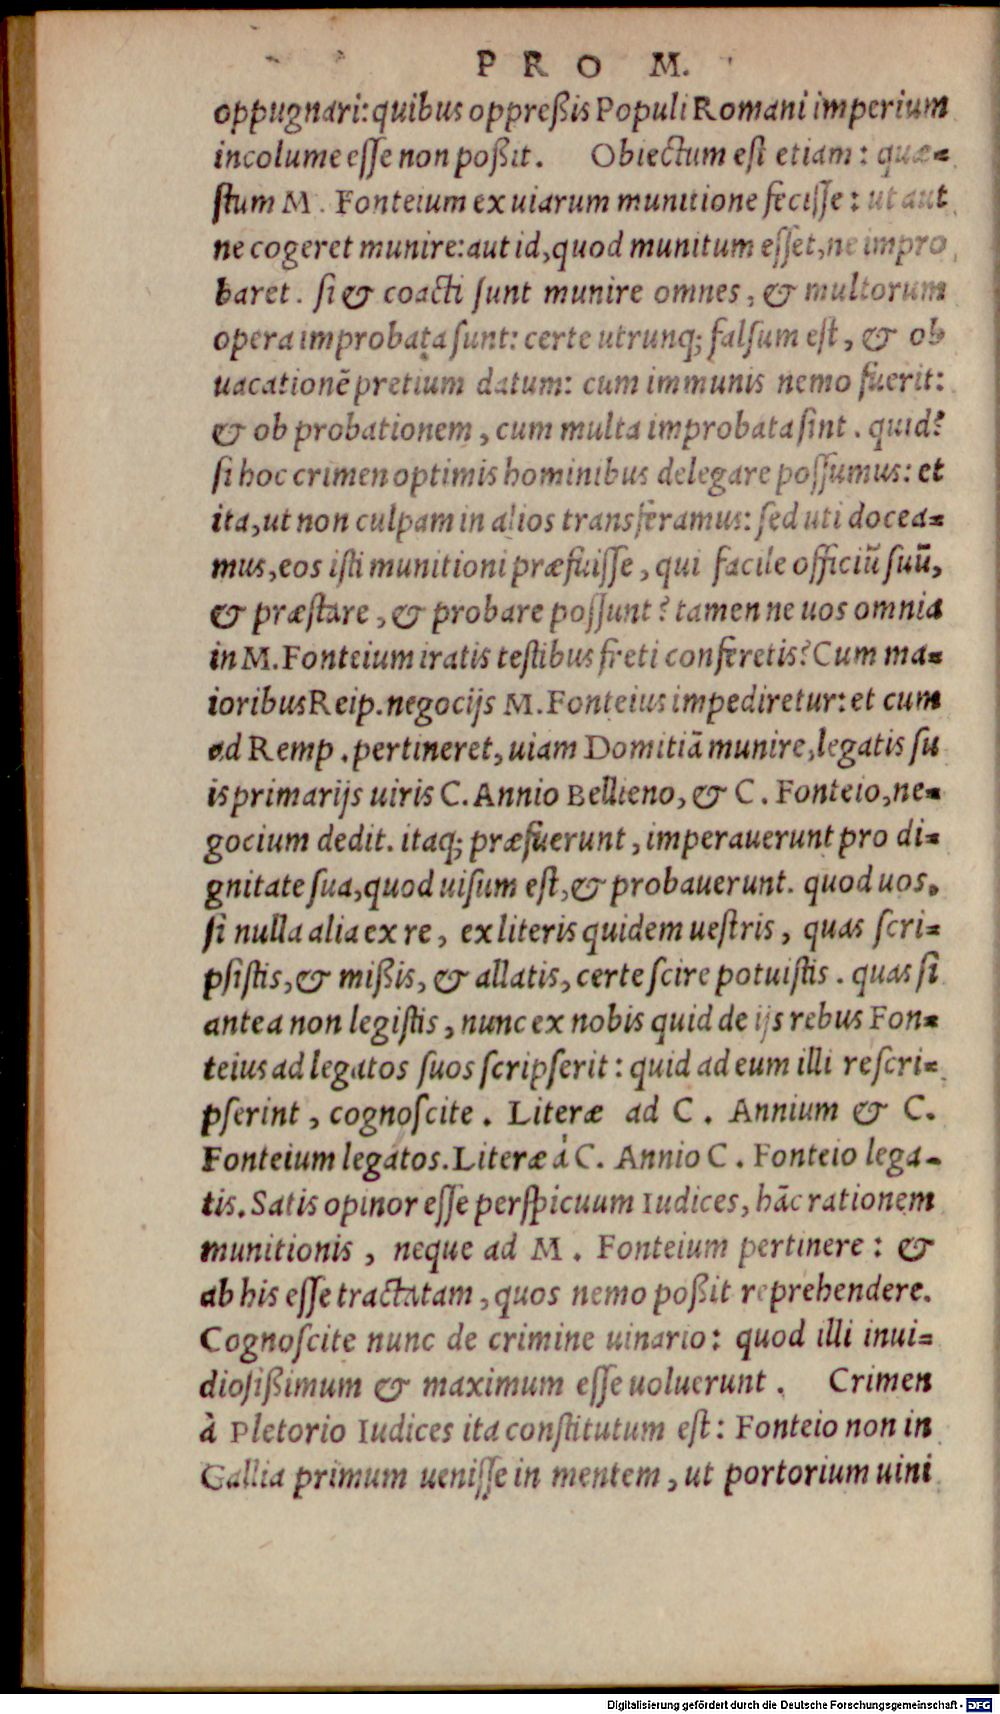 P R O M.
oppugnari: quibus oppreßis Populi Romani imperium
incolume eſſe non poßit. Obiectum eſt etiam: quæ=
ſtum M. Fonteium ex uiarum munitione feciſſe: ut aut
ne cogeret munire: aut id, quod munitum eſſet, ne impro
baret. ſi & coacti ſunt munire omnes, & multorum
opera improbata ſunt: certe utrunq; falſum eſt, & ob
uacationē pretium datum: cum immunis nemo fuerit:
& ob probationem, cum multa improbata ſint. quid?
ſi hoc crimen optimis hominibus delegare poſſumus: et
ita, ut non culpam in alios transferamus: ſed uti docea=
mus, eos iſti munitioni præfuiſſe, qui facile officiū ſuū,
& præſtare, & probare poſſunt? tamen ne uos omnia
in M. Fonteium iratis teſtibus freti conferetis? Cum ma=
ioribus Reip. negocijs M. Fonteius impediretur: et cum
ad Remp. pertineret, uiam Domitiā munire, legatis ſu
is primarijs uiris C. Annio Bellieno, & C. Fonteio, ne=
gocium dedit. itaq; præfuerunt, imperauerunt pro di=
gnitate ſua, quod uiſum eſt, & probauerunt. quod uos,
ſi nulla alia ex re, ex literis quidem ueſtris, quas ſcri=
pſiſtis, & mißis, & allatis, certe ſcire potuiſtis. quas ſi
antea non legiſtis, nunc ex nobis quid de ijs rebus Fon=
teius ad legatos ſuos ſcripſerit: quid ad eum illi reſcri=
pſerint, cognoſcite. Literæ ad C. Annium & C.
Fonteium legatos. Literæ à C. Annio C. Fonteio lega-
tis. Satis opinor eſſe perſpicuum Iudices, hāc rationem
munitionis, neque ad M. Fonteium pertinere: &
ab his eſſe tractatam, quos nemo poßit reprehendere.
Cognoſcite nunc de crimine uinario: quod illi inui=
dioſißimum & maximum eſſe uoluerunt. Crimen
à Pletorio Iudices ita conſtitutum eſt: Fonteio non in
Gallia primum ueniſſe in mentem, ut portorium uini
Digitalisierung gefördert durch die Deutsche Forschungsgemeinschaft - DFG